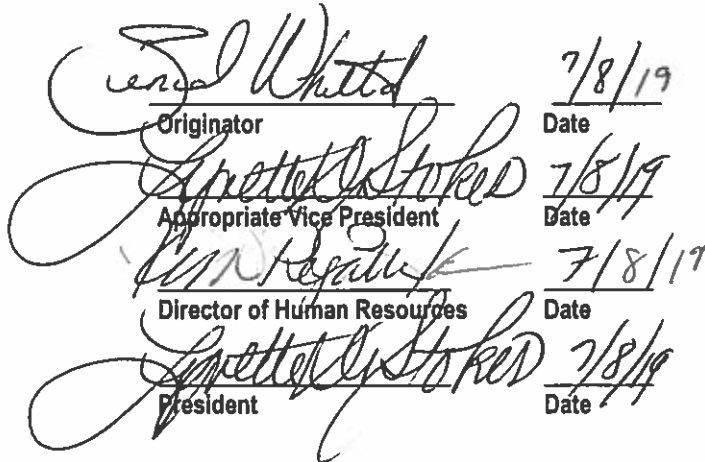 Whitted 7/8/19
Originator Date
Lynette D. Stokes 7/8/19
Appropriate Vice President Date
7/8/19
Director of Human Resources Date
Lynette D. Stokes 7/8/19
President Date